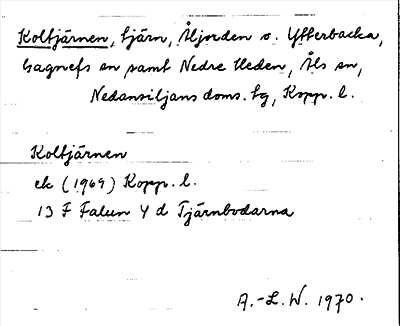 Koltjärnen, tjärn, Åljorden o. Ytterbacka,
Gagnefs sn samt Nedre Heden, Åls sn,
Nedansiljans doms. tg, Kopp. l.
Koltjärnen
ek (1969) Kopp. l.
13 F Falun 4 d Tjärnbodarna
A.-L. W. 1970.